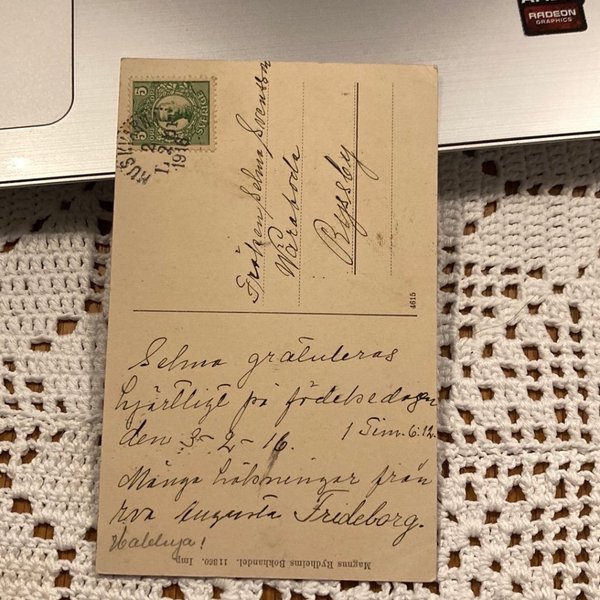 RADEON
GRAPHICS
5 5
SVERIGE
1918
Fröken Selma Svensson
Ryssby
4615
Selma gratuleras
hjärtligt på födelsedagen
den 3-2-16. 1 Tim. 6:12.
Många hälsningar från
Augusta Frideborg.
Halleluja!
Magnus Rydholms Bokhandel. 11360. Imp.